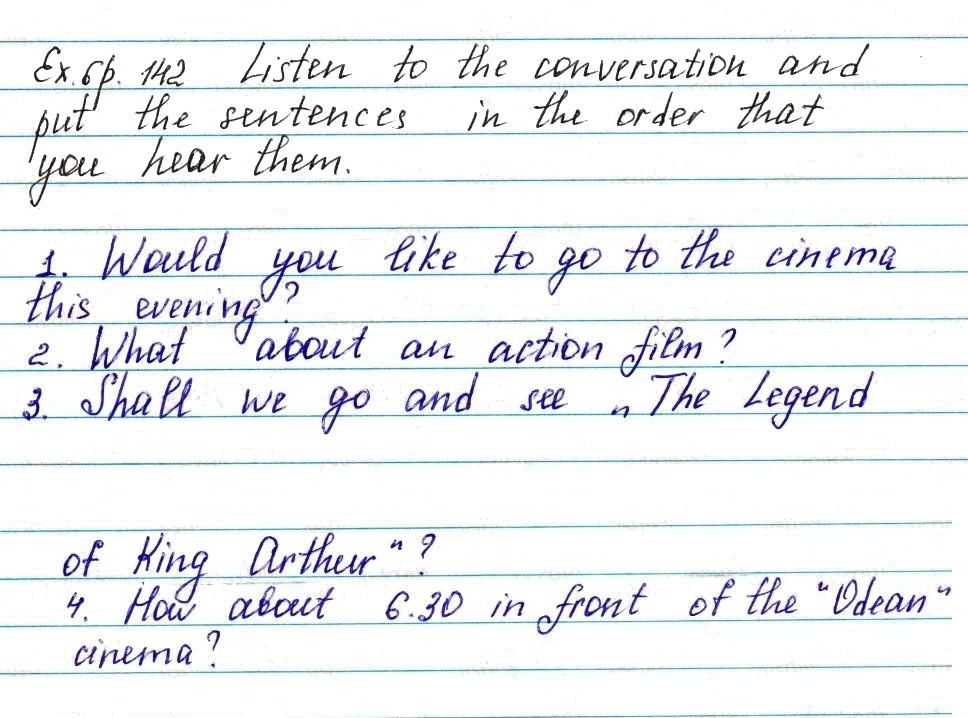 Ex. 6 p. 142 Listen to the conversation and
put the sentences in the order that
you hear them.
1. Would you like to go to the cinema
this evening?
2. What about an action film?
3. Shall we go and see „The Legend
of King Arthur"?
4. How about 6.30 in front of the "Odean"
cinema?